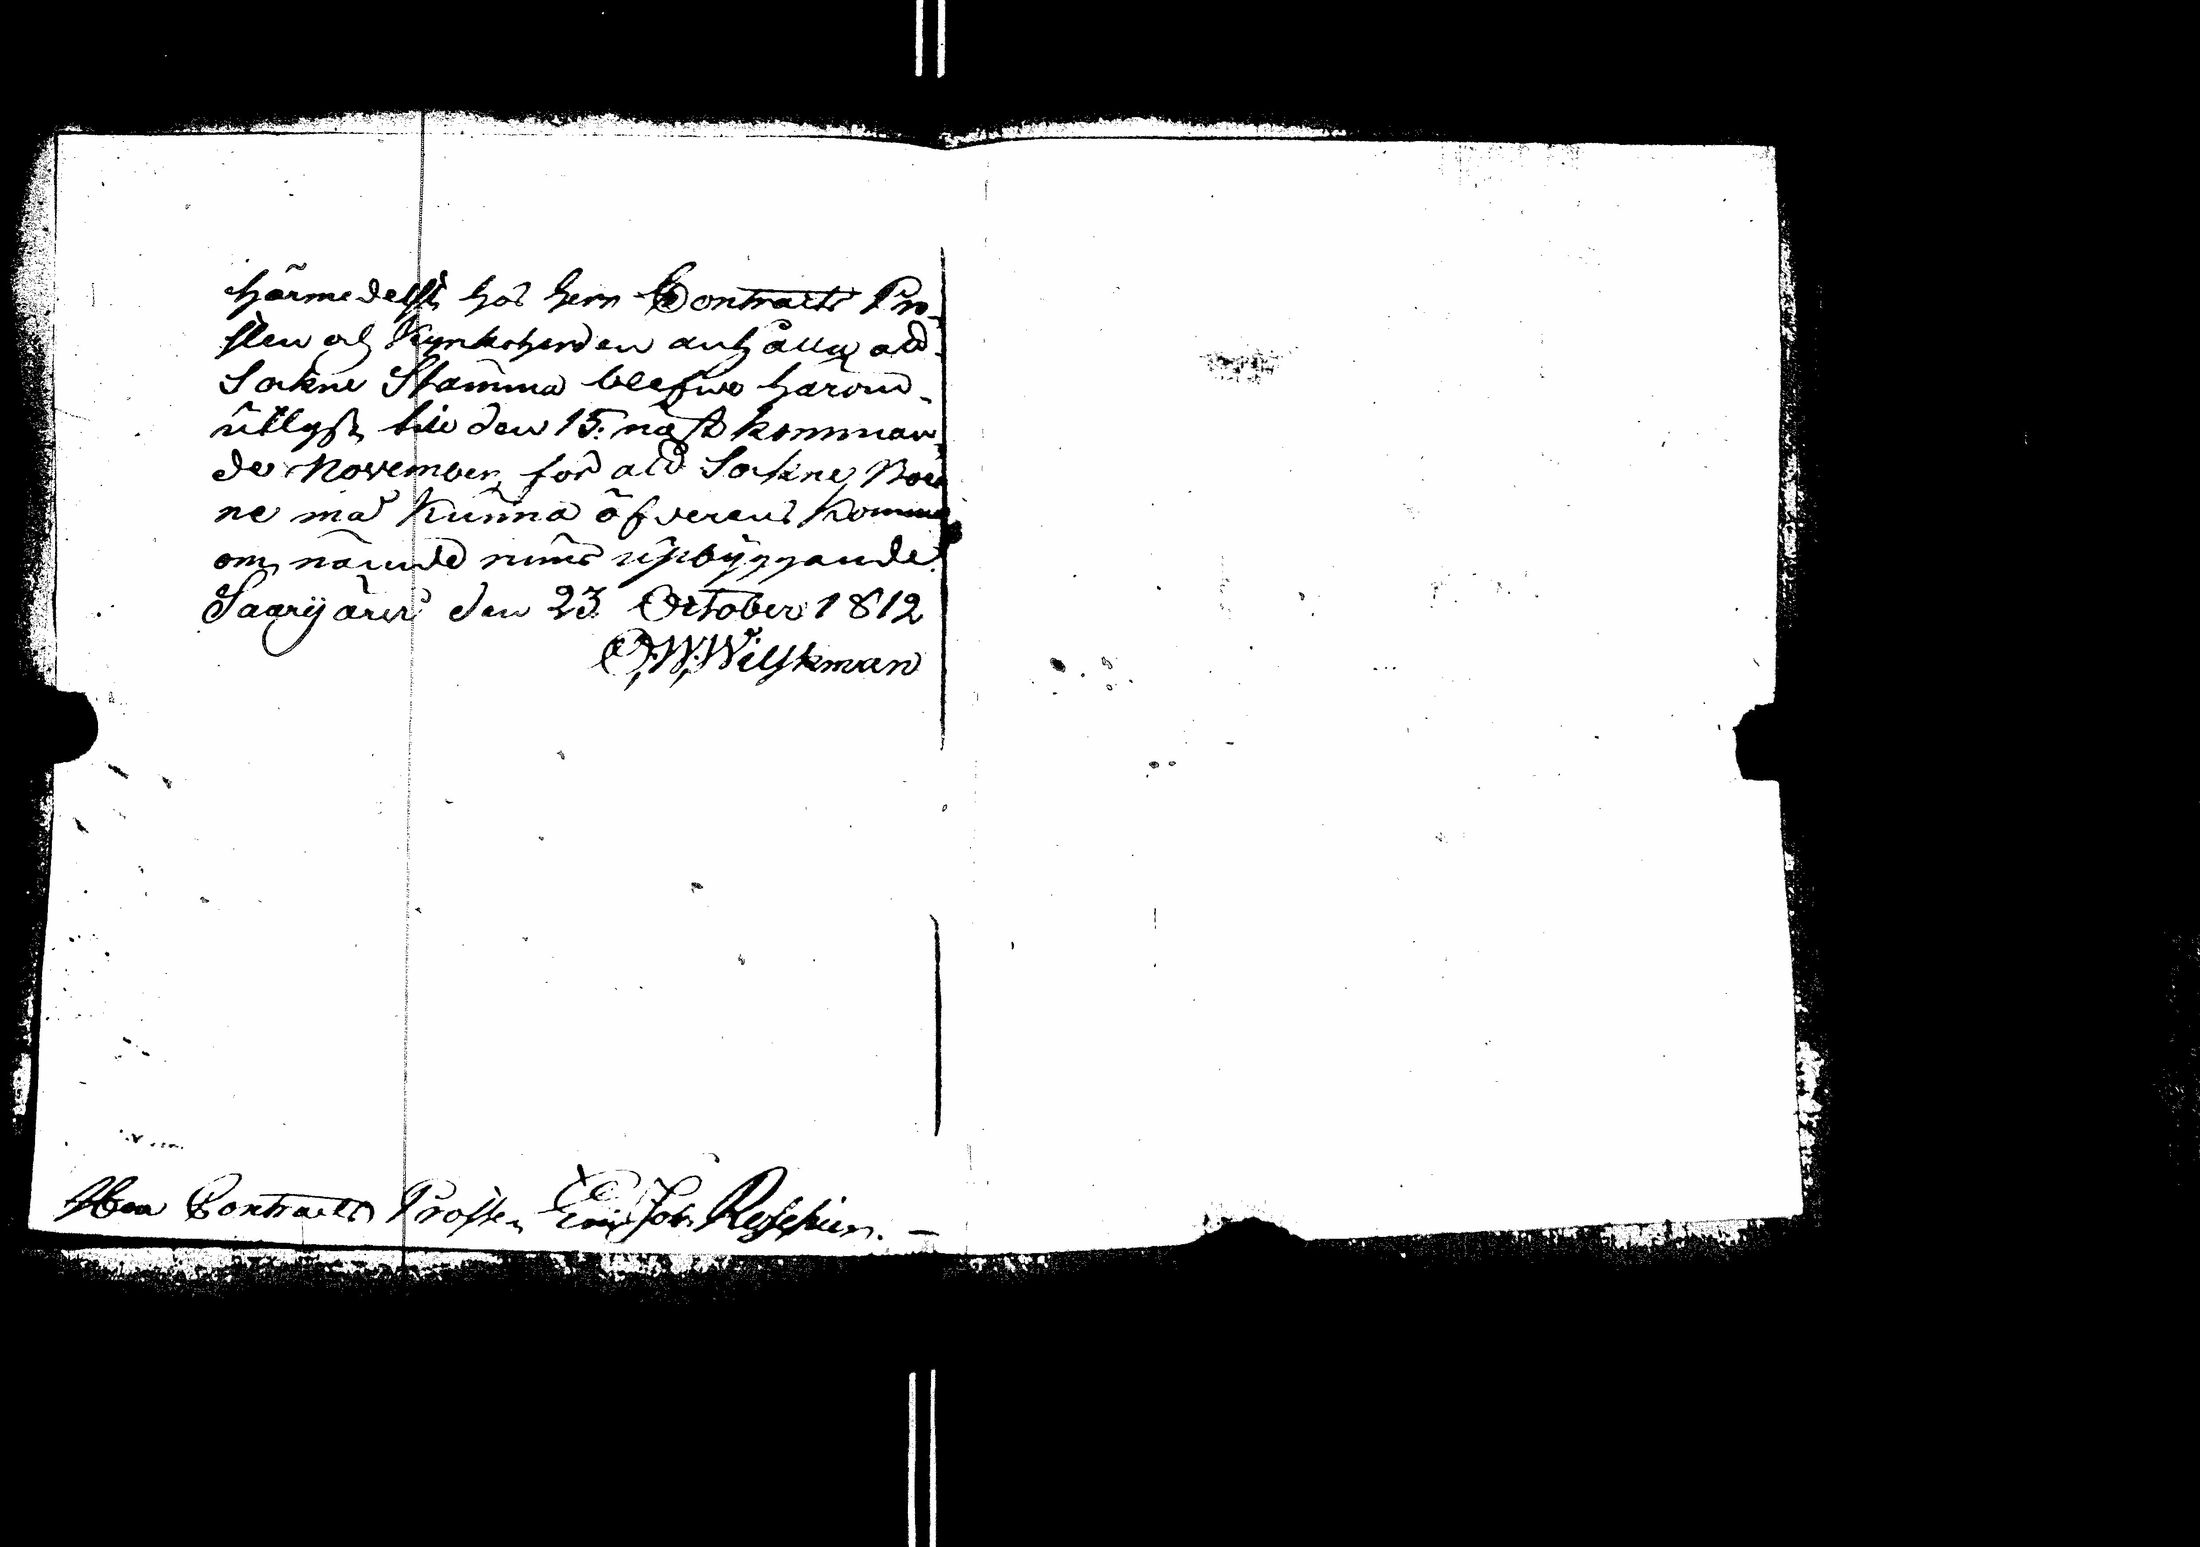 härmedelst hos herr Contracts Pro-
sten och Kyrkoherden anhålla att
Sockne Stämma blefwe härom
utlyst till den 15: näst komman-
de November, för att Sockne Boer-
ne må kunna öfverens komma
om nämde rums upbyggande.
Saarijärvi den 23 October 1812
O.W. Wilskman
Herr Contracts Prosten Eric Joh.